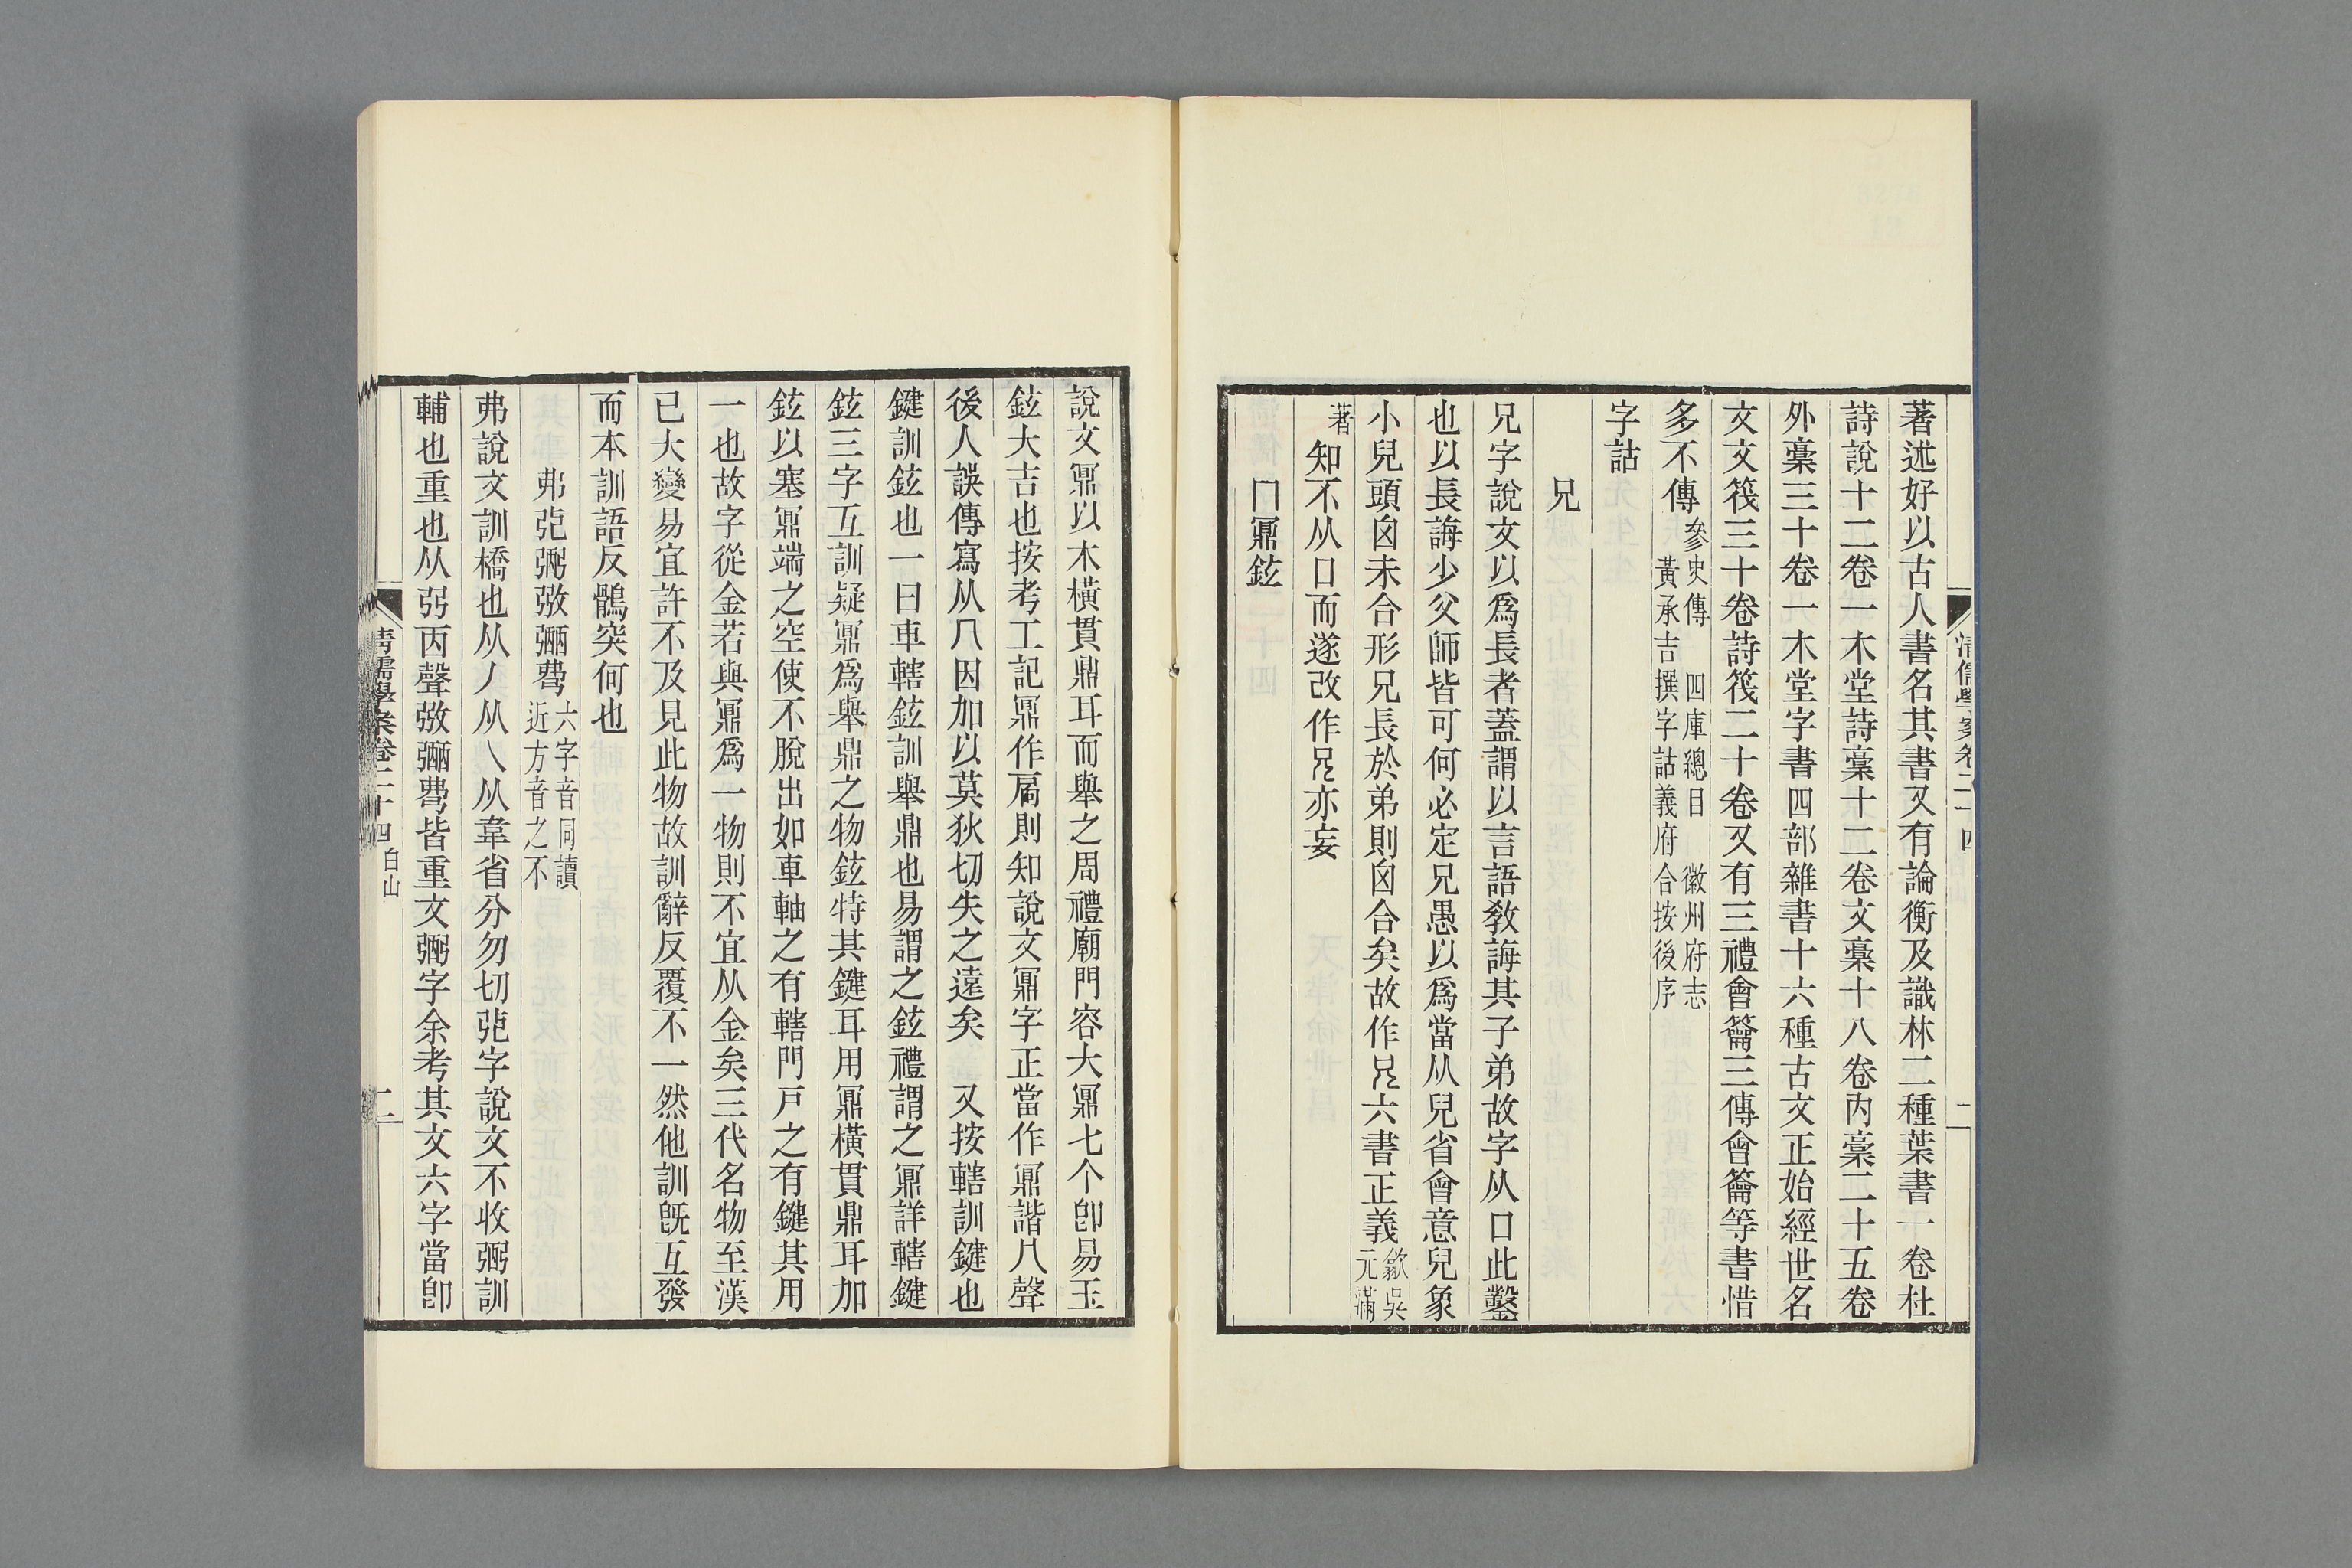 著述好以古人書名其書又有論衡及識林二種葉書一卷杜
詩說十二卷一木堂詩稾十二卷文稾十八卷內稾二十五卷
外稾三十卷一木堂字書四部雜書十六種古文正始經世名
文文筏三十卷詩筏二十卷又有三禮會籥三傳會籥等書惜
多不傳參史傳　四庫總目　徽州府志
黃承吉撰字詁義府合按後序
字詁
兄
兄字說文以爲長者蓋謂以言語教誨其子弟故字从口此鑿
也以長誨少父師皆可何必定兄愚以爲當从兒省會意兒象
小兒頭囟未合形兄長於弟則囟合矣故作兄六書正義歙吳
元滿
著知不从口而遂改作兄亦妄
冂鼏鉉
說文鼏以木橫貫鼎耳而舉之周禮廟門容大鼏七个卽易玉
鉉大吉也按考工記鼏作扃則知說文鼏字正當作鼏諧冂聲
後人誤傳寫从冖因加以莫狄切失之遠矣　又按轄訓鍵也
鍵訓鉉也一曰車轄鉉訓舉鼎也易謂之鉉禮謂之鼏詳轄鍵
鉉三字互訓疑鼏爲舉鼎之物鉉特其鍵耳用鼏橫貫鼎耳加
鉉以塞鼏端之空使不脫出如車軸之有轄門戶之有鍵其用
一也故字從金若與鼏爲一物則不宜从金矣三代名物至漢
已大變易宜許不及見此物故訓辭反覆不一然他訓旣互發
而本訓語反鶻突何也
弗弝弼㢸彌𢐀六字音同讀
近方音之不
弗說文訓橋也从丿从乀从韋省分勿切弝字說文不收弼訓
輔也重也从弜丙聲㢸彌𢐀皆重文弼字余考其文六字當卽
清儒學案卷二十四白山
二